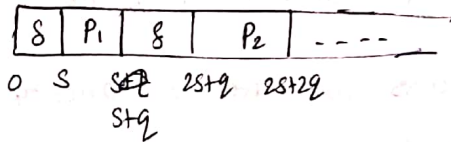 δ P₁ δ P₂ ----
0 S S+q 2S+q 2S+2q
S+q